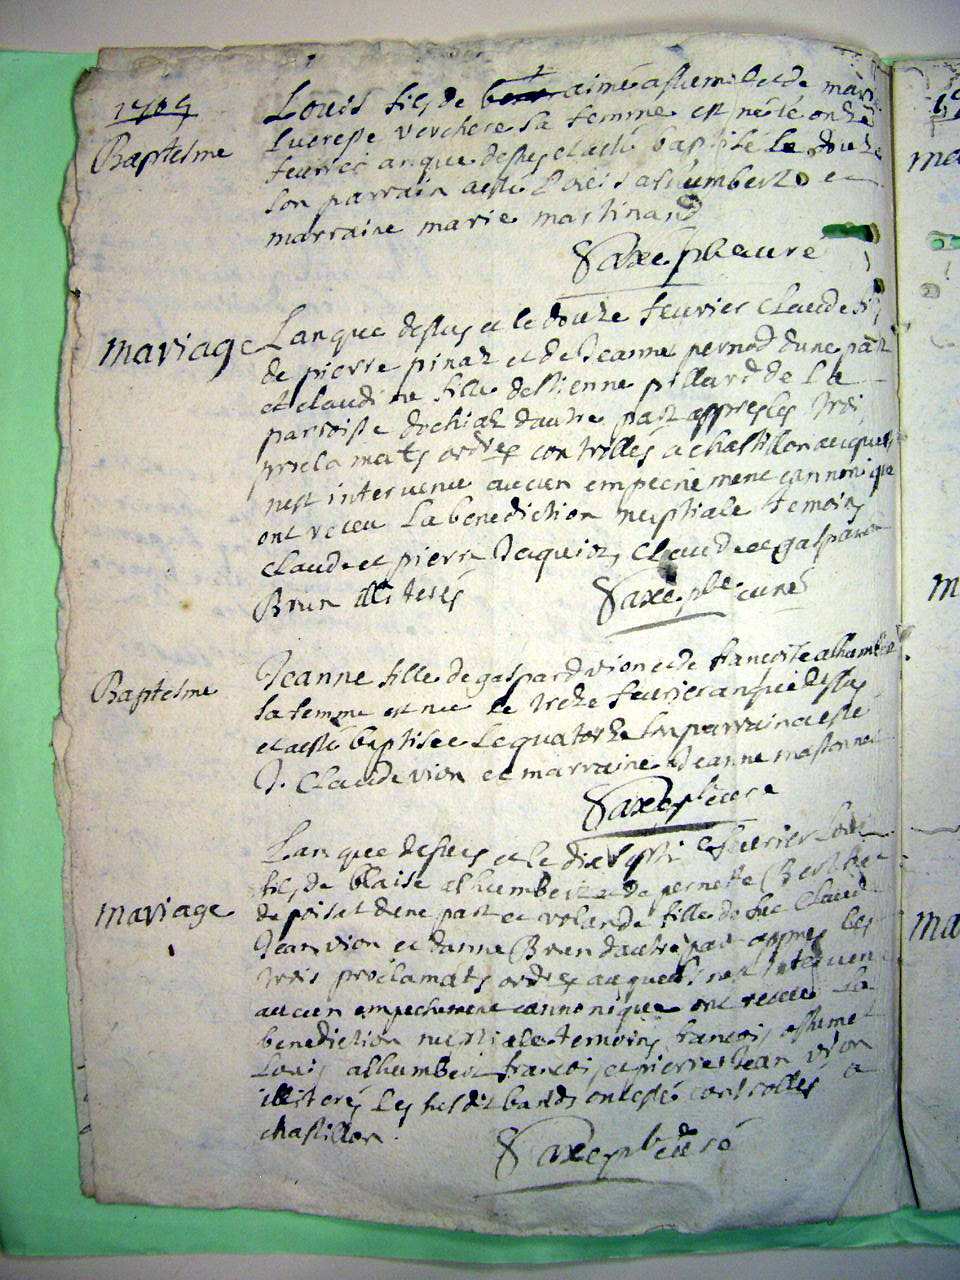 1705
Baptesme
Louis fils de aimé alhumbert et de marie
Lucresse verchere sa femme est né le onze
feuvrier an que dessus et a esté baptisé le douze
son parrain a esté Louis alhumbert et
marraine marie martinand
Saxe pbr curé
mariage
L an que dessus et le douze feuvrier Claude fils
de pierre pinaz et de Jeanne pernod dune part
et claudine fille detienne pillard de La
parroisse dautre part appres les trois
proclamats ordres controllés a chastillon auquels
nest intervenu aucun empechement cannonique
ont receu La benediction nuptiale temoins
claude et pierre Jaquioz, claude et gaspard
Brun illiterés
Saxe pbr curé
Baptesme
Jeanne fille de gaspard vion et de francoise alhumbert
sa femme est née le treize feuvrier an que dessus
et a esté baptisée le quatorze son parrain a esté
J. Claude vion et marraine Jeanne
Saxe pbr curé
mariage
L an que dessus et le feuvrier Louis
fils de blaise alhumbert et de pernette
de poisat dune part et fille de feu Claude
Jean vion et danne Brun dautre part appres les
trois proclamats ordres auquels nest intervenu
aucun empechement cannonique ont receu La
benediction nuptiale temoins francois
Louis alhumbert francois et pierre Jean vion
illiterés Les susdits bands ont esté controllés a
chastillon.
Saxe pbr curé